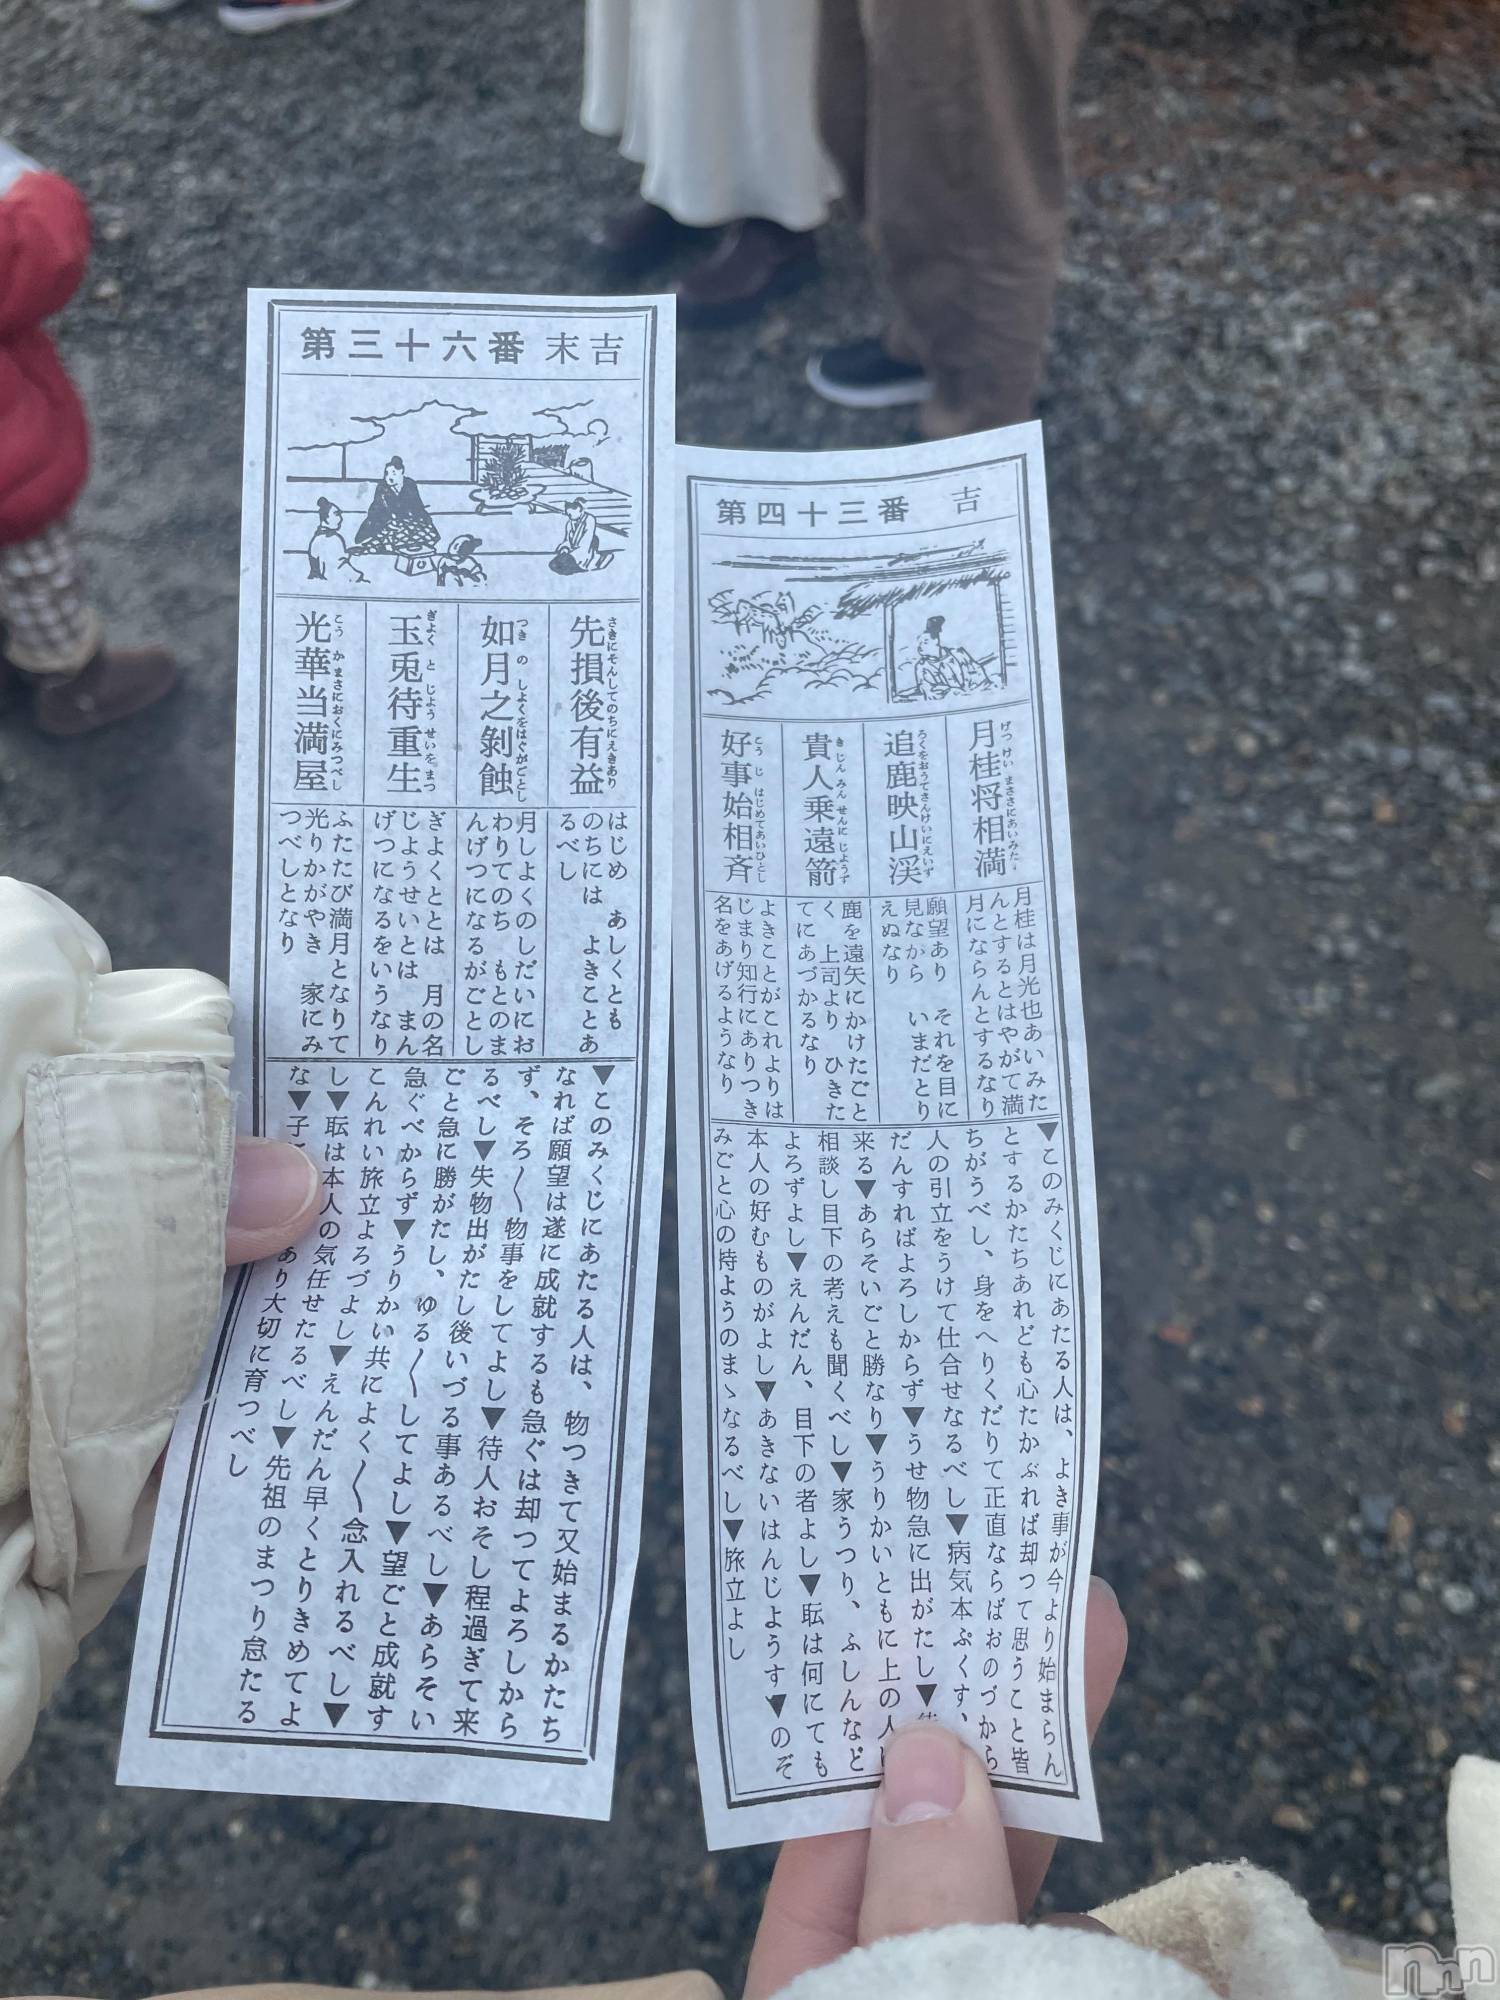 第三十六番 末吉
先損後有益
さきにそんしてのちにえきあり
如月之剝蝕
つきのしよくをはぐがごとし
玉兎待重生
ぎよくとじようせいをまつ
光華当満屋
こうかまさにおくにみつべし
はじめ あしくとも
のちには よきことあ
るべし
月しよくのしだいにお
わりてのち もとのま
んげつになるがごとし
ぎよくととは 月の名
じようせいとは まん
げつになるをいうなり
ふたたび満月となりて
光りかがやき 家にみ
つべしとなり
▼このみくじにあたる人は、物つきて又始まるかたち
なれば願望は遂に成就するも急ぐは却つてよろしから
ず、そろ〳〵物事をしてよし▼待人おそし程過ぎて来
るべし▼失物出がたし後いづる事あるべし▼あらそい
ごと急に勝がたし、ゆる〳〵してよし▼望ごと成就す
急ぐべからず▼うりかい共によく〳〵念入れるべし▼
こんれい旅立よろづよし▼えんだん早くとりきめてよ
し▼転は本人の気任せたるべし▼先祖のまつり怠たる
な▼子 あり大切に育つべし
第四十三番 吉
月桂将相満
げつけいまさにあいみた
追鹿映山渓
ろくをおうてさんけいにえいず
貴人乗遠箭
きじんみんせんにじようず
好事始相斉
こうじはじめてあいひとし
月桂は月光也あいみた
んとするとはやがて満
月にならんとするなり
願望あり それを目に
見ながら いまだとり
えぬなり
鹿を遠矢にかけたごと
く 上司より ひきた
てにあづかるなり
よきことがこれよりは
じまり知行にありつき
名をあげるようなり
▼このみくじにあたる人は、よき事が今より始まらん
とするかたちあれども心たかぶれば却つて思うこと皆
ちがうべし、身をへりくだりて正直ならばおのづから
人の引立をうけて仕合せなるべし▼病気本ぷくす、
だんすればよろしからず▼うせ物急に出がたし▼
来る▼あらそいごと勝なり▼うりかいともに上の人
相談し目下の考えも聞くべし▼家うつり、ふしんなど
よろずよし▼えんだん、目下の者よし▼転は何にても
本人の好むものがよし▼あきないはんじようす▼のぞ
みごと心の持ようのまゝなるべし▼旅立よし
nnn